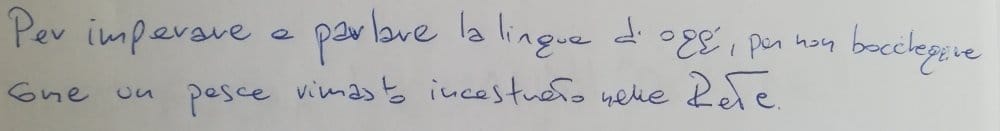 Per imparare a parlare la lingua di oggi, per non boccheggiare
come un pesce rimasto incastrato nella Rete.